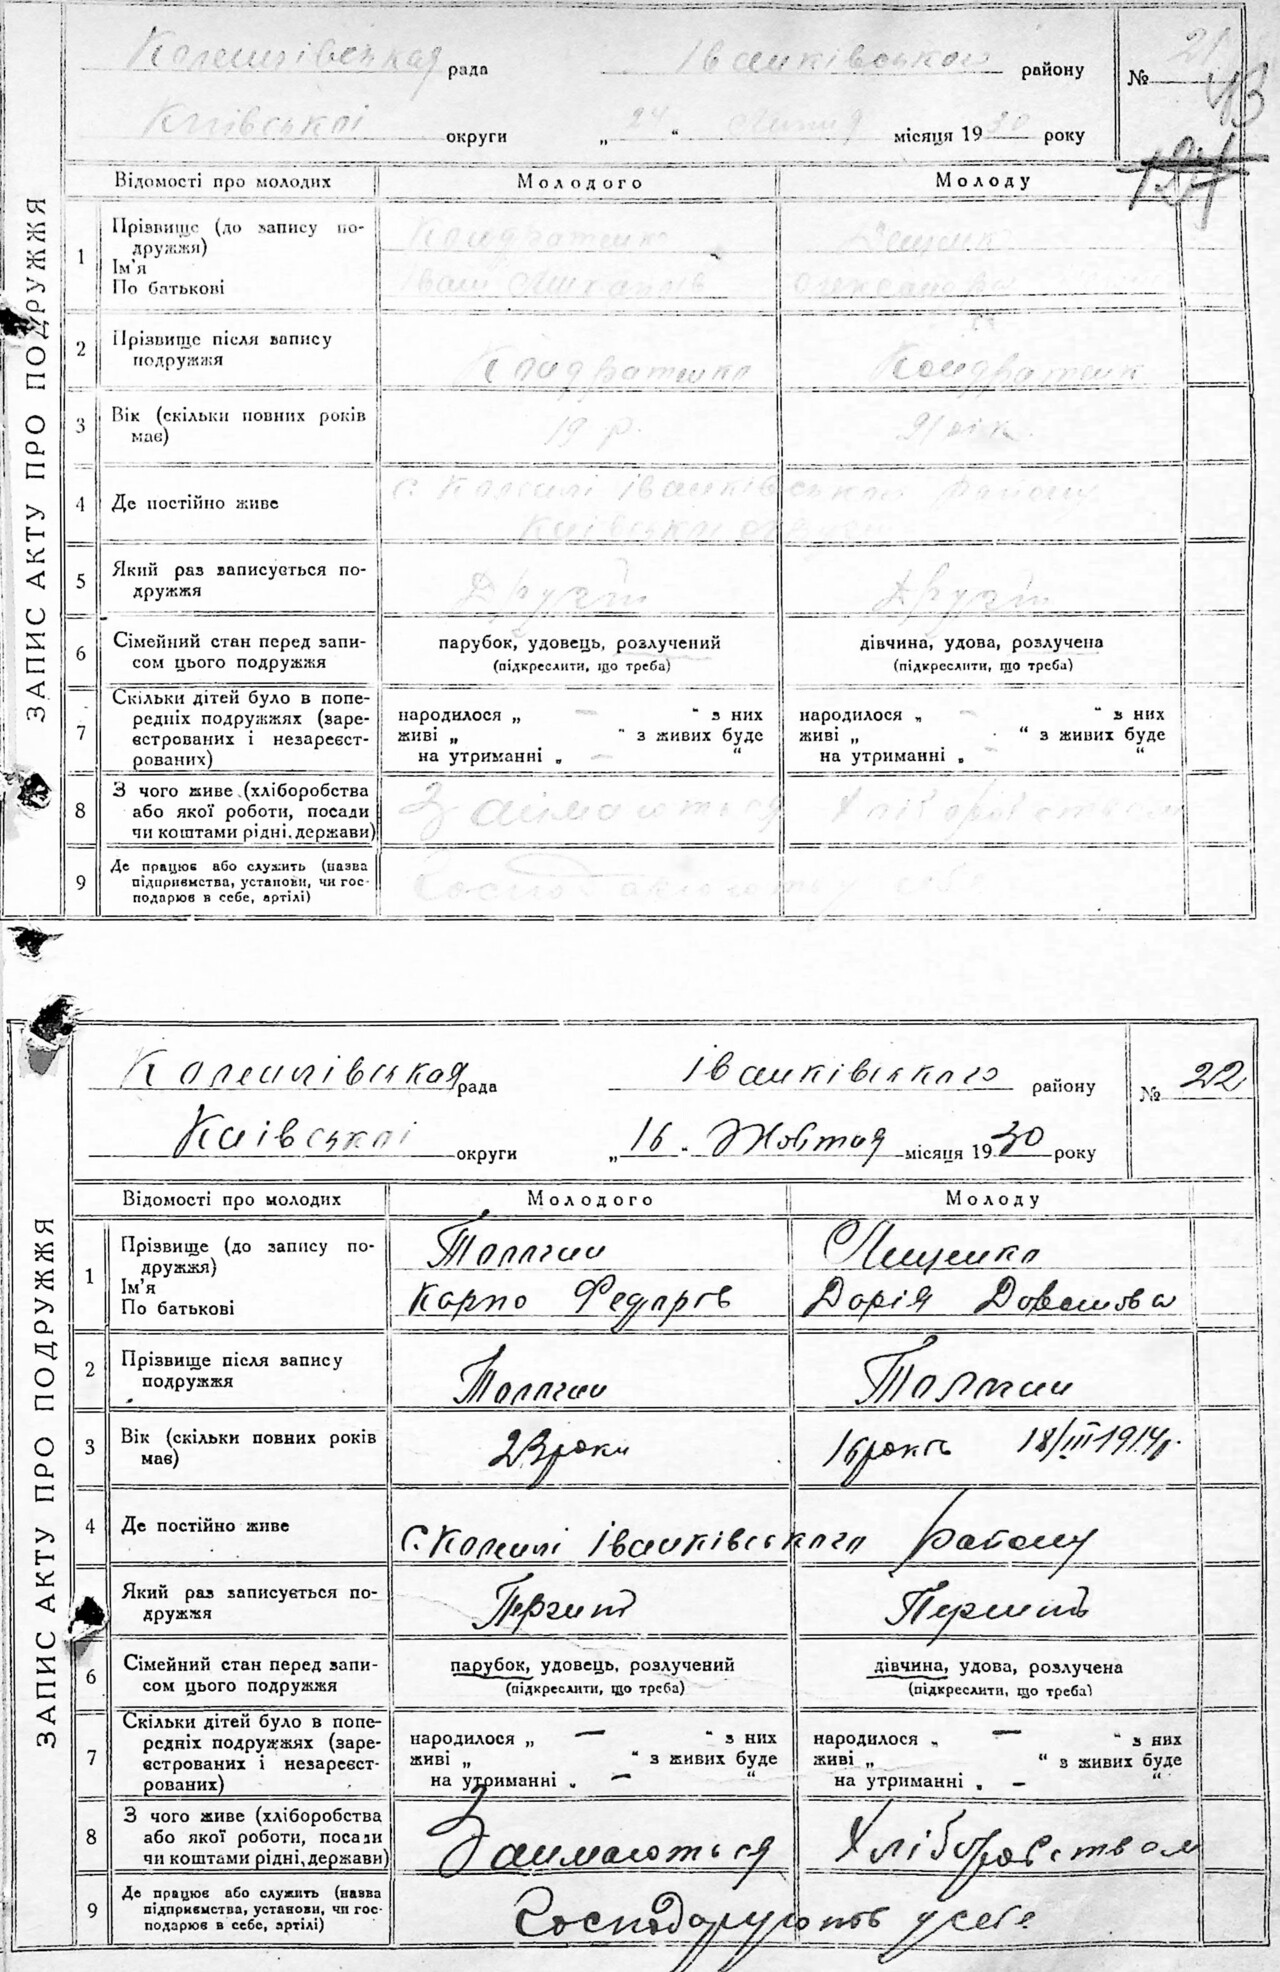 рада Іванківського району № 21
43
Київської округи „ 24 “ Липня місяця 1930 року
ЗАПИС АКТУ ПРО ПОДРУЖЖЯ
Відомості про молодих Молодого Молоду
1 Прізвище (до запису по-
дружжя)
Ім'я
По батькові
Іван
2 Прізвище після запису
подружжя
3 Вік (скільки повних років
має)
19 р. 21 рік
4 Де постійно живе
с. Іванківського району
Київської округи
5 Який раз записується по-
дружжя
Другий Другий
6 Сімейний стан перед запи-
сом цього подружжя
парубок, удовець, розлучений дівчина, удова, розлучена
(підкреслити, що треба) (підкреслити, що треба)
7 Скільки дітей було в попе-
редніх подружжях (заре-
єстрованих і незареєст-
рованих)
народилося „ — “ з них народилося „ — “ з них
живі „ “ з живих буде живі „ “ з живих буде
на утриманні „ — “ на утриманні „ — “
8 З чого живе (хліборобства
або якої роботи, посади
чи коштами рідні, держави)
Займаються Хліборобством
9 Де працює або служить (назва
підприємства, установи, чи гос-
подарює в себе, артілі)
Господарюють у себе
рада Іванківського району № 22
Київської округи „ 16 “ Жовтня місяця 1930 року
ЗАПИС АКТУ ПРО ПОДРУЖЖЯ
Відомості про молодих Молодого Молоду
1 Прізвище (до запису по-
дружжя)
Ім'я
По батькові
Лещенко
Карпо Федорів Дарія
2 Прізвище після запису
подружжя
3 Вік (скільки повних років
має)
23 роки 16 років 18/III 1914 р.
4 Де постійно живе
с. Іванківського району
5 Який раз записується по-
дружжя
Перший Перший
6 Сімейний стан перед запи-
сом цього подружжя
парубок, удовець, розлучений дівчина, удова, розлучена
(підкреслити, що треба) (підкреслити, що треба)
7 Скільки дітей було в попе-
редніх подружжях (заре-
єстрованих і незареєст-
рованих)
народилося „ — “ з них народилося „ — “ з них
живі „ “ з живих буде живі „ “ з живих буде
на утриманні „ — “ на утриманні „ — “
8 З чого живе (хліборобства
або якої роботи, посади
чи коштами рідні, держави)
Займаються Хліборобством
9 Де працює або служить (назва
підприємства, установи, чи гос-
подарює в себе, артілі)
Господарують у себе